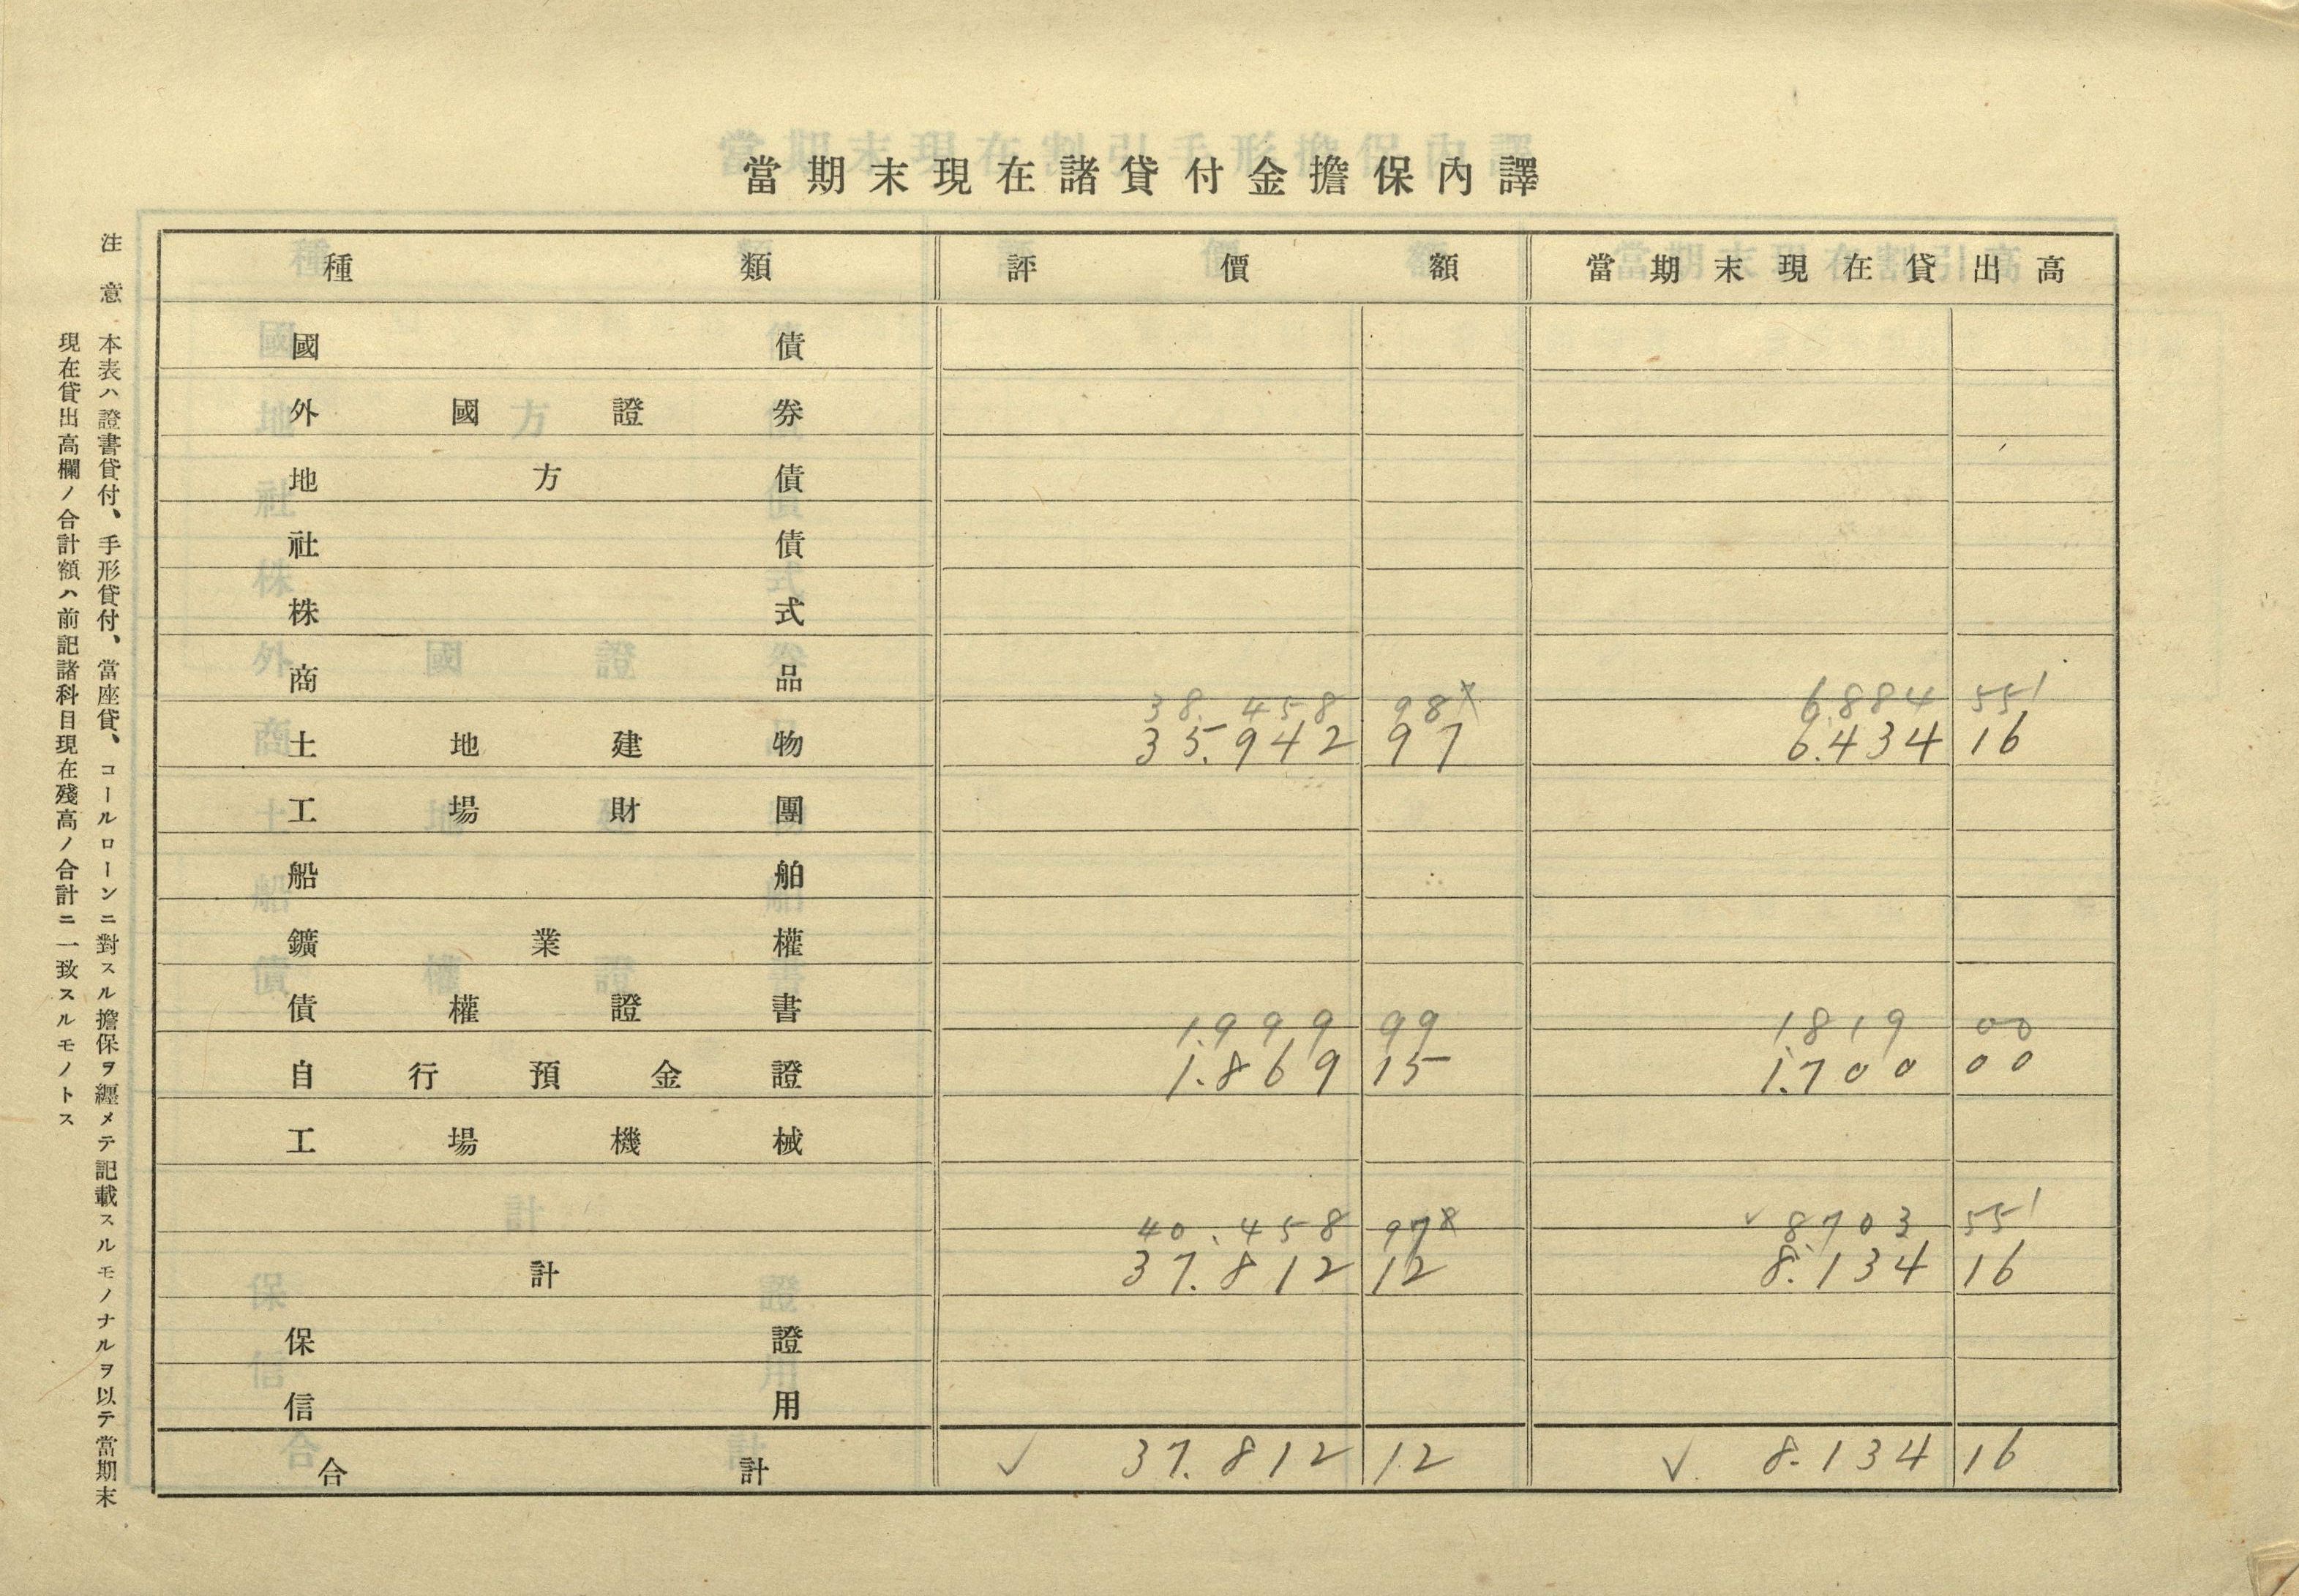 當期末現在諸貸付金擔保內譯
種類 評價額 當期末現在貸出高
國債
外國證券
地方債
社債
株式
商品
38.458 98 6.884 55
土地建物 35.942 97 6.434 16
工場財團
船舶
鑛業權
債權證書
1.999 99 1.819 00
自行預金證 1.869 15 1.700 00
工場機械
40.458 97 8.703 55
計 37.812 12 8.134 16
保證
信用
合計 ✓ 37.812 12 ✓ 8.134 16
注意 本表ハ證書貸付、手形貸付、當座貸、コールローンニ對スル擔保ヲ纒メテ記載スルモノナルヲ以テ當期末
現在貸出高欄ノ合計額ハ前記諸科目現在殘高ノ合計ニ一致スルモノトス